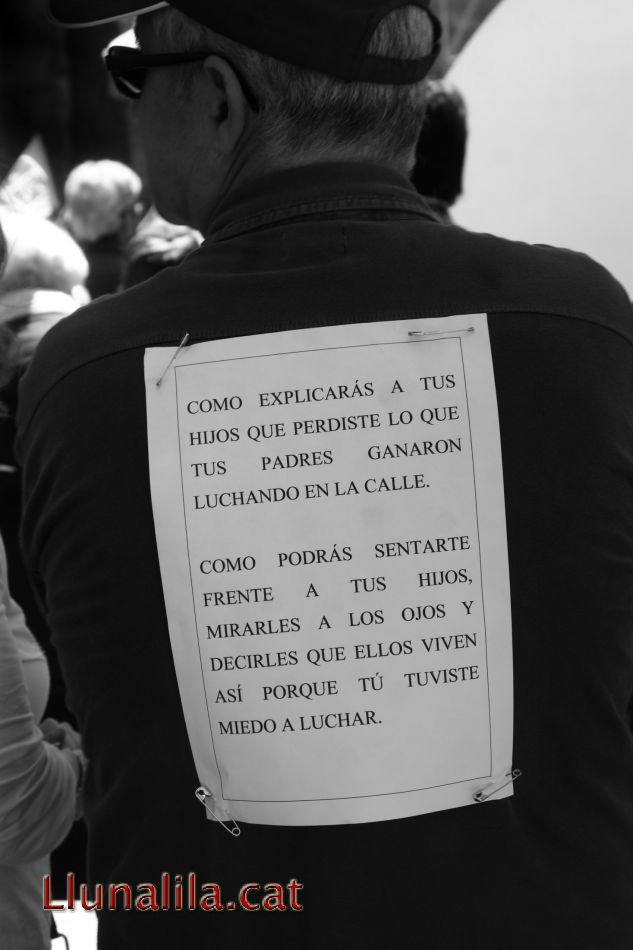 COMO EXPLICARÁS A TUS
HIJOS QUE PERDISTE LO QUE
TUS PADRES GANARON
LUCHANDO EN LA CALLE.
COMO PODRÁS SENTARTE
FRENTE A TUS HIJOS,
MIRARLES A LOS OJOS Y
DECIRLES QUE ELLOS VIVEN
ASÍ PORQUE TÚ TUVISTE
MIEDO A LUCHAR.
Llunalila.cat